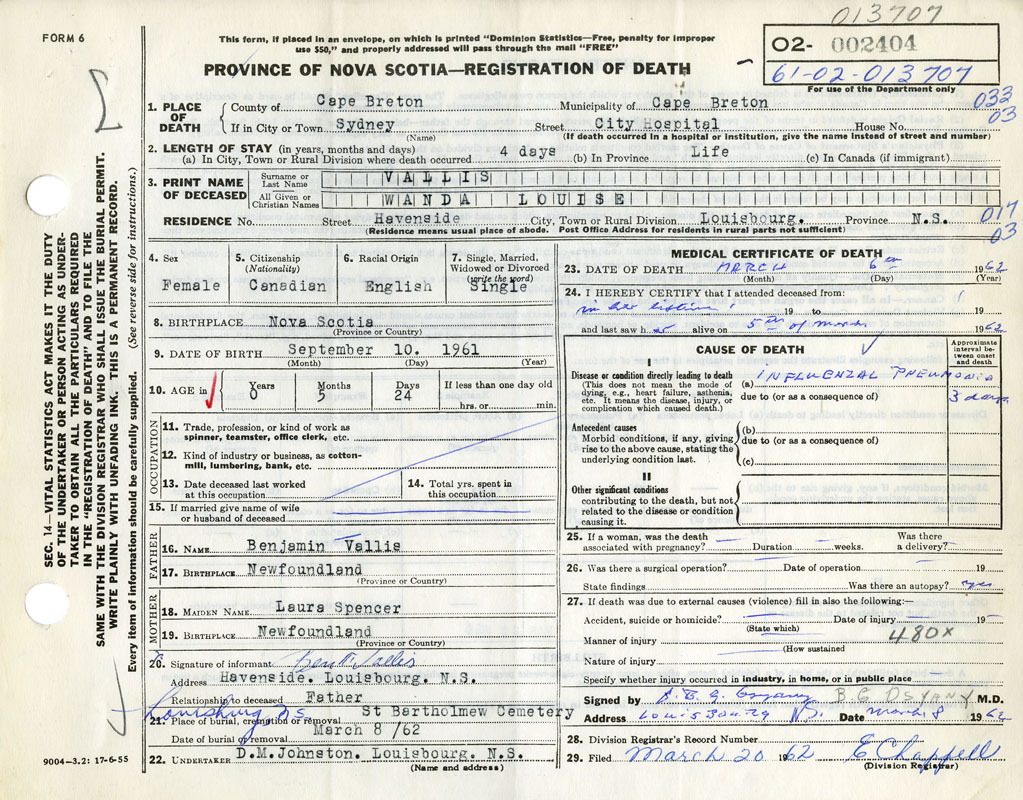 013707
FORM 6
This form, if placed in an envelope, on which is printed "Dominion Statistics—Free, penalty for improper
use $50," and properly addressed will pass through the mail "FREE"
PROVINCE OF NOVA SCOTIA—REGISTRATION OF DEATH
O2- 002404
61-02-013707
For use of the Department only
033
03
1. PLACE OF DEATH
County of Cape Breton Municipality of Cape Breton
If in City or Town Sydney Street City Hospital House No.
(Name) (If death occurred in a hospital or institution, give the name instead of street and number)
2. LENGTH OF STAY (in years, months and days)
(a) In City, Town or Rural Division where death occurred 4 days (b) In Province Life (c) In Canada (if immigrant)
3. PRINT NAME OF DECEASED
Surname or Last Name VALLIS
All Given or Christian Names WANDA LOUISE
RESIDENCE No. Street Havenside City, Town or Rural Division Louisbourg. Province N.S.
(Residence means usual place of abode. Post Office Address for residents in rural parts not sufficient)
017
03
4. Sex
Female
5. Citizenship
(Nationality)
Canadian
6. Racial Origin
English
7. Single, Married,
Widowed or Divorced
(write the word)
Single
8. BIRTHPLACE Nova Scotia
(Province or Country)
9. DATE OF BIRTH September 10. 1961
(Month) (Day) (Year)
10. AGE in
Years Months Days If less than one day old
0 5 24 hrs. or min.
OCCUPATION
11. Trade, profession, or kind of work as
spinner, teamster, office clerk, etc.
12. Kind of industry or business, as cotton-
mill, lumbering, bank, etc.
13. Date deceased last worked
at this occupation
14. Total yrs. spent in
this occupation
15. If married give name of wife
or husband of deceased
FATHER
16. NAME Benjamin Vallis
17. BIRTHPLACE Newfoundland
(Province or Country)
MOTHER
18. MAIDEN NAME Laura Spencer
19. BIRTHPLACE Newfoundland
(Province or Country)
20. Signature of informant Vallis
Address Havenside. Louisbourg. N.S.
Relationship to deceased Father
21. Place of burial, cremation or removal St Bartholmew Cemetery
Date of burial or removal March 8 /62
22. UNDERTAKER D.M.Johnston. Louisbourg. N.S.
(Name and address)
MEDICAL CERTIFICATE OF DEATH
23. DATE OF DEATH MARCH 6th 1962
(Month) (Day) (Year)
24. I HEREBY CERTIFY that I attended deceased from:
19 to 19
and last saw h alive on 5th of March 1962
CAUSE OF DEATH
Approximate
interval be-
tween onset
and death
I
Disease or condition directly leading to death
(This does not mean the mode of
dying, e.g., heart failure, asthenia,
etc. It means the disease, injury, or
complication which caused death.)
(a) INFLUENZAL PNEUMONIA
due to (or as a consequence of)
3 days
Antecedent causes
Morbid conditions, if any, giving
rise to the above cause, stating the
underlying condition last.
(b)
due to (or as a consequence of)
(c)
II
Other significant conditions
contributing to the death, but not
related to the disease or condition
causing it.
25. If a woman, was the death Was there
associated with pregnancy? Duration weeks. a delivery?
26. Was there a surgical operation? Date of operation 19
State findings Was there an autopsy? yes
27. If death was due to external causes (violence) fill in also the following:—
Accident, suicide or homicide? Date of injury 19
(State which)
480X
Manner of injury
(How sustained
Nature of injury
Specify whether injury occurred in industry, in home, or in public place
Signed by B.G. OSYANY M.D.
Address Louisbourg N.S. Date March 8 1962
28. Division Registrar's Record Number
29. Filed March 20 1962 E Chappell
(Division Registrar)
SEC. 14—VITAL STATISTICS ACT MAKES IT THE DUTY
OF THE UNDERTAKER OR PERSON ACTING AS UNDER-
TAKER TO OBTAIN ALL THE PARTICULARS REQUIRED
IN THE "REGISTRATION OF DEATH" AND TO FILE THE
SAME WITH THE DIVISION REGISTRAR WHO SHALL ISSUE THE BURIAL PERMIT.
WRITE PLAINLY WITH UNFADING INK. THIS IS A PERMANENT RECORD.
Every item of information should be carefully supplied. (See reverse side for instructions.)
9004—3.2: 17-6-55